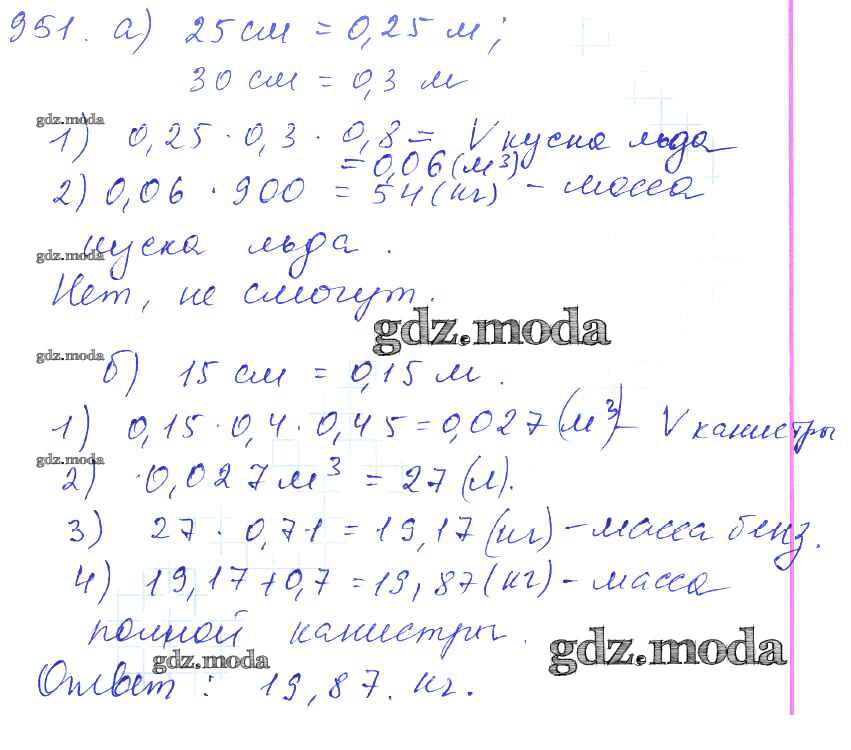 951. а) 25 см = 0,25 м;
30 см = 0,3 м
gdz.moda
1) 0,25 · 0,3 · 0,8 = V куска льда
= 0,06 (м³)
2) 0,06 · 900 = 54 (кг) - масса
gdz.moda
куска льда.
Нет, не смогут.
gdz.moda
gdz.moda
б) 15 см = 0,15 м.
1) 0,15 · 0,4 · 0,45 = 0,027 (м³) - V канистры
gdz.moda
2) 0,027 м³ = 27 (л).
3) 27 · 0,71 = 19,17 (кг) - масса бенз.
4) 19,17 + 0,7 = 19,87 (кг) - масса
полной канистры.
gdz.moda
gdz.moda
Ответ: 19,87 кг.